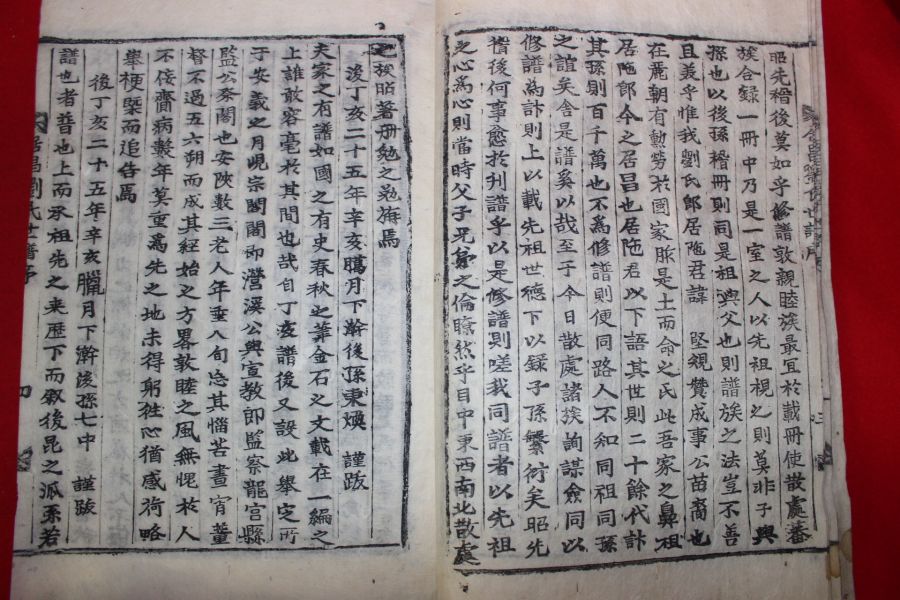 昭先稽後莫如乎修譜敦親睦族最宜於載冊使散處蕃
族合錄一冊中乃是一室之人以先祖視之則莫非子與
孫也以後孫稽冊則同是祖與父也則譜族之法豈不善
且美乎惟我劉氏郎居陁君諱 堅規贊成事公苗裔也
在麗朝有勳勞於國家胙是土而命之氏此吾家之鼻祖
居陁郎今之居昌也居陁君以下語其世則二十餘代計
其孫則百千萬也不爲修譜則便同路人不和同祖同孫
之誼矣舍是譜奚以哉至于今日散處諸族詢謀僉同以
修譜爲計則上以載先祖世德下以錄子孫繁衍矣昭先
稽後何事愈於刊譜乎以是修譜則嗟我同譜者以先祖
之心爲心則當時父子兄弟之倫瞭然乎目中東西南北散處
之族昭著冊勉之勉旃焉
後丁亥二十五年辛亥臈月下澣後孫東煥 謹跋
夫家之有譜如國之有史春秋之筆金石之文載在一編之
上誰敢容毫於其間也哉自丁亥譜後又設此舉定所
于安義之月峴宗閣閣卽濸溪公與宣教郎監察龍宮縣
監公奈閣也安陜數三老人年垂八旬忘其惱苦晝宵董
督不過五六朔而成其經始之方畧敦睦之風無愧於人
不佞齎病數年莫重爲先之地未得躬徃心猶感荷略
舉梗槩而追告焉
後丁亥二十五年辛亥臘月下澣後孫七中 謹跋
譜也者普也上而承祖先之来歷下而叙後昆之派系若
居昌劉氏世譜序